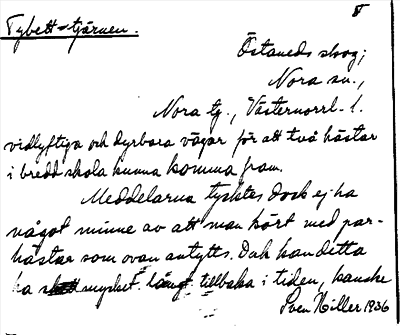 Tybett-tjärnen.
Östaneds skog;
Nora sn.,
Nora tg., Västernorrl. l.
vidlyftiga och dyrbara vägar för att två hästar
i bredd skola kunna komma fram.
Meddelarna tycktes dock ej ha
något minne av att man kört med par-
hästar som ovan antytts. Dock kan detta
ha mycket långt tillbaka i tiden, kanske
Sven Hiller 1936